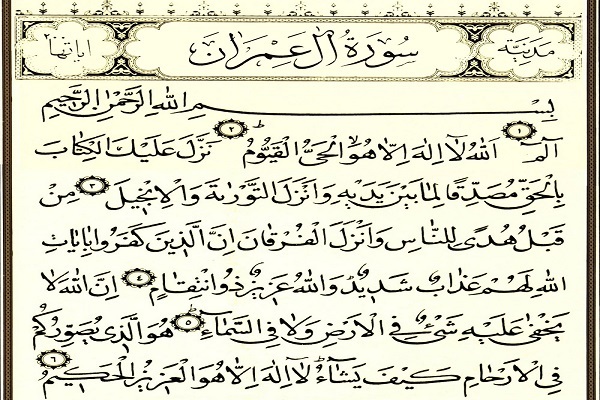 مدنية سورة آل عمران اياتها ٢
بسم الله الرحمن الرحيم
الٓمٓ ١ اَللّٰهُ لَٓا اِلٰهَ اِلَّا هُوَ الْحَيُّ الْقَيُّومُ ٢ نَزَّلَ عَلَيْكَ الْكِتَابَ
بِالْحَقِّ مُصَدِّقًا لِمَا بَيْنَ يَدَيْهِ وَاَنْزَلَ التَّوْرٰيةَ وَالْاِنْجِيلَ ٣ مِنْ
قَبْلُ هُدًى لِلنَّاسِ وَاَنْزَلَ الْفُرْقَانَ اِنَّ الَّذِينَ كَفَرُوا بِاٰيَاتِ
اللّٰهِ لَهُمْ عَذَابٌ شَدِيدٌ وَاللّٰهُ عَزِيزٌ ذُو انْتِقَامٍ ٤ اِنَّ اللّٰهَ لَا
يَخْفٰى عَلَيْهِ شَيْءٌ فِي الْاَرْضِ وَلَا فِي السَّمَٓاءِ ٥ هُوَ الَّذِي يُصَوِّرُكُمْ
فِي الْاَرْحَامِ كَيْفَ يَشَٓاءُ لَٓا اِلٰهَ اِلَّا هُوَ الْعَزِيزُ الْحَكِيمُ ٦